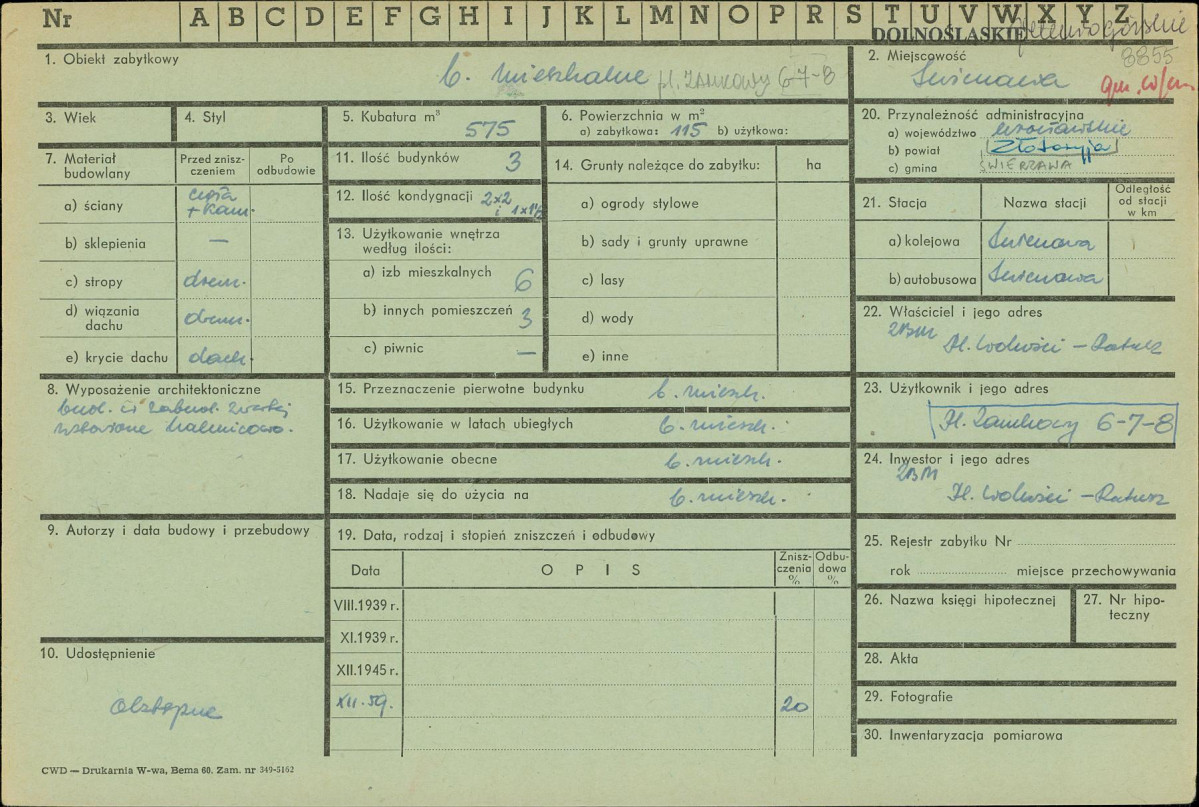 Nr A B C D E F G H I J K L M N O P R S T U V W X Y Z
DOLNOŚLĄSKIE
8855
1. Obiekt zabytkowy
b. mieszkalne pl. ZAMKOWY 6-7-8
2. Miejscowość
Świerzawa
3. Wiek
4. Styl
5. Kubatura m³
575
6. Powierzchnia w m²
a) zabytkowa: 115 b) użytkowa:
20. Przynależność administracyjna
a) województwo wrocławskie
b) powiat Złotoryja
c) gmina ŚWIERZAWA
7. Materiał budowlany
Przed zniszczeniem
Po odbudowie
a) ściany cegła + kam.
b) sklepienia —
c) stropy drewn.
d) wiązania dachu drewn.
e) krycie dachu dach.
11. Ilość budynków 3
12. Ilość kondygnacji 2x2 i 1x1½
13. Użytkowanie wnętrza według ilości:
a) izb mieszkalnych 6
b) innych pomieszczeń 3
c) piwnic —
14. Grunty należące do zabytku: ha
a) ogrody stylowe
b) sady i grunty uprawne
c) lasy
d) wody
e) inne
21. Stacja Nazwa stacji Odległość od stacji w km
a) kolejowa Świerzawa
b) autobusowa Świerzawa
22. Właściciel i jego adres
ZBM
Pl. Wolności – Ratusz
8. Wyposażenie architektoniczne
bud. w zabud. zwartej
15. Przeznaczenie pierwotne budynku b. mieszk.
16. Użytkowanie w latach ubiegłych b. mieszk.
17. Użytkowanie obecne b. mieszk.
18. Nadaje się do użycia na b. mieszk.
23. Użytkownik i jego adres
Pl. Zamkowy 6-7-8
24. Inwestor i jego adres
ZBM
Pl. Wolności – Ratusz
9. Autorzy i data budowy i przebudowy
19. Data, rodzaj i stopień zniszczeń i odbudowy
Data OPIS Zniszczenia % Odbudowa %
VIII.1939 r.
XI.1939 r.
XII.1945 r.
XII.59. 20
25. Rejestr zabytku Nr
rok miejsce przechowywania
26. Nazwa księgi hipotecznej
27. Nr hipoteczny
28. Akta
29. Fotografie
30. Inwentaryzacja pomiarowa
10. Udostępnienie
CWD — Drukarnia W-wa, Bema 60. Zam. nr 349-5162